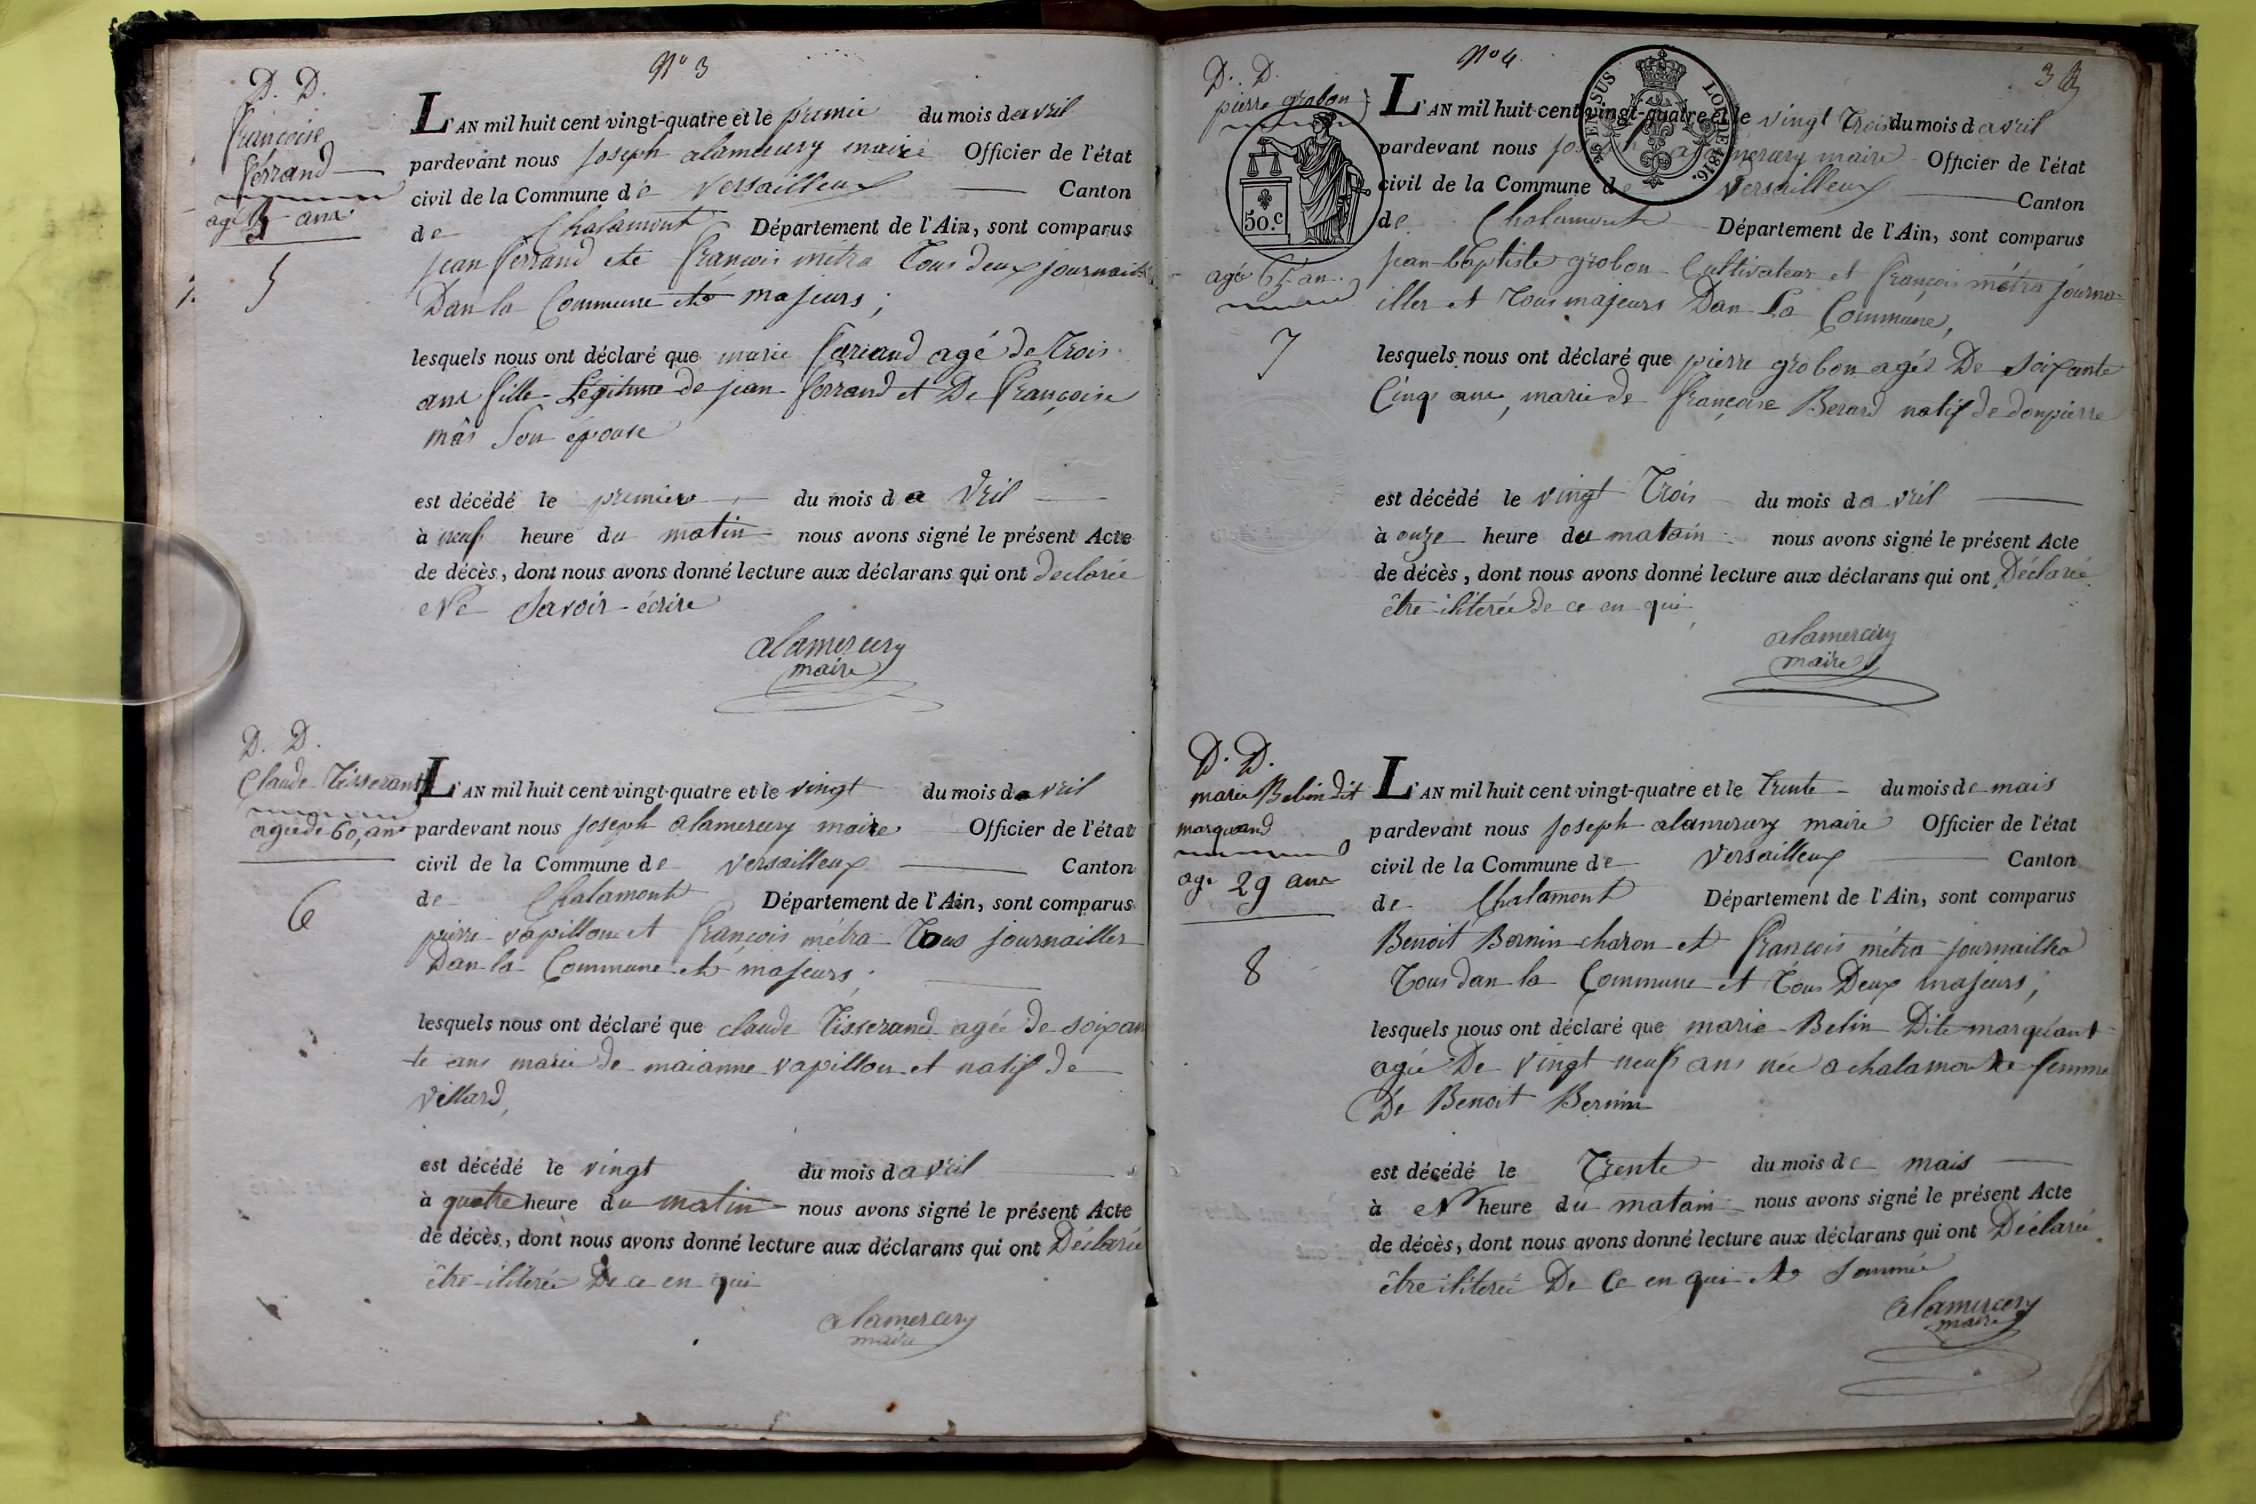 N° 3
D. D.
françoise
ferrand
agé 3 ans
5
L'AN mil huit cent vingt-quatre et le premie du mois davril
pardevant nous joseph alamercery maire Officier de l'état
civil de la Commune de versailleux Canton
de Chalamont Département de l'Ain, sont comparus
jean ferrand et françois métra Tous deux journailler
Dan la Commune et majeurs ;
lesquels nous ont déclaré que marie ferrand agé de Trois
ans fille Légitime de jean ferrand et De françoise
mâs Son épouse
est décédé le premiere du mois da Vril
à neuf heure du matin nous avons signé le présent Acte
de décès, dont nous avons donné lecture aux déclarans qui ont declarée
Ne Savoir écrire
alamercery
maire
D. D.
Claude Tisserand
agée de 60, ans
6
L'AN mil huit cent vingt-quatre et le vingt du mois davril
pardevant nous joseph alamercery maire Officier de l'état
civil de la Commune de versailleux Canton
de Chalamont Département de l'Ain, sont comparus
pierre vapillon et françois métra Tous journailler
Dan la Commune et majeurs ;
lesquels nous ont déclaré que claude Tisserand agée de soixan
te ans marie de maianne vapillon et natif de
villard,
est décédé le vingt du mois davril
à quatre heure du matin nous avons signé le présent Acte
de décès, dont nous avons donné lecture aux déclarans qui ont Déclarée
être iliterée De ce en qui
alamercery
maire
N° 4
3
D. D.
pierre grobon
50.c
agé 65 an
7
EN SUS
LOI DE 1816.
L'AN mil huit cent vingt-quatre et le vingt Trois du mois davril
pardevant nous joseph alamercery maire Officier de l'état
civil de la Commune de versailleux Canton
de Chalamont Département de l'Ain, sont comparus
jean-baptiste grobon Cultivateur et françois métra journa-
iller et Tous majeurs Dan La Commune,
lesquels nous ont déclaré que pierre grobon agée De Soixante
Cinq ans, marie de françoise Berard natif de donpierre
est décédé le vingt Trois du mois davril
à onze heure du matain nous avons signé le présent Acte
de décès, dont nous avons donné lecture aux déclarans qui ont Déclarée
être iliterée De ce en qui,
alamercery
maire
D. D.
marie Belin dit
marquand
age 29 ans
8
L'AN mil huit cent vingt-quatre et le Trente du mois de mais
pardevant nous joseph alamercery maire Officier de l'état
civil de la Commune de versailleux Canton
de Chalamont Département de l'Ain, sont comparus
Benoit Bernin charon et françois métra journailler
Tous dan la Commune et Tous Deux majeurs ;
lesquels nous ont déclaré que marie Belin Dite marquant
agée De vingt neufs ans née a chalamont femme
De Benoit Bernin
est décédé le Trente du mois de mais
à heure du matain nous avons signé le présent Acte
de décès, dont nous avons donné lecture aux déclarans qui ont Déclarée
être iliterée De Ce en qui et Sommée
alamercery
maire